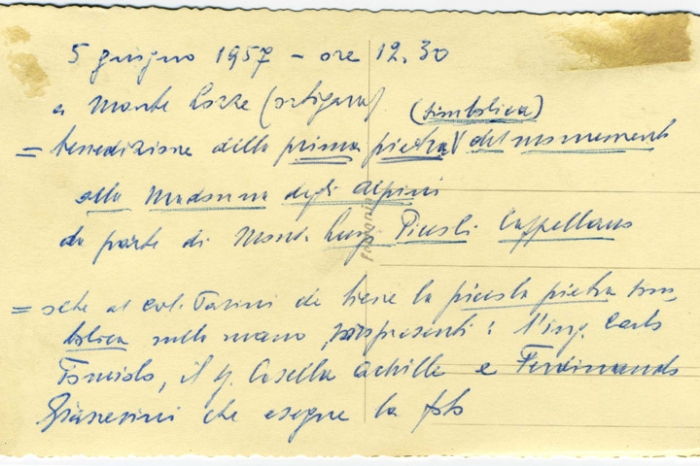 5 giugno 1957 - ore 12.30
a Monte Lozze (Ortigara)
(simbolica)
= benedizione della prima pietra del monumento
alla Madonna degli Alpini
da parte di Mons. Luigi Piccoli Cappellano
= oltre al Col. Tarini che tiene la piccola pietra sim
bolica nella mano, presenti: l'ing. Carlo
il g. Casella Achille e Ferdinando
che esegue la foto